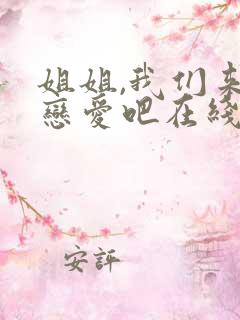 姐姐,我们来
戀愛吧在綫
安評